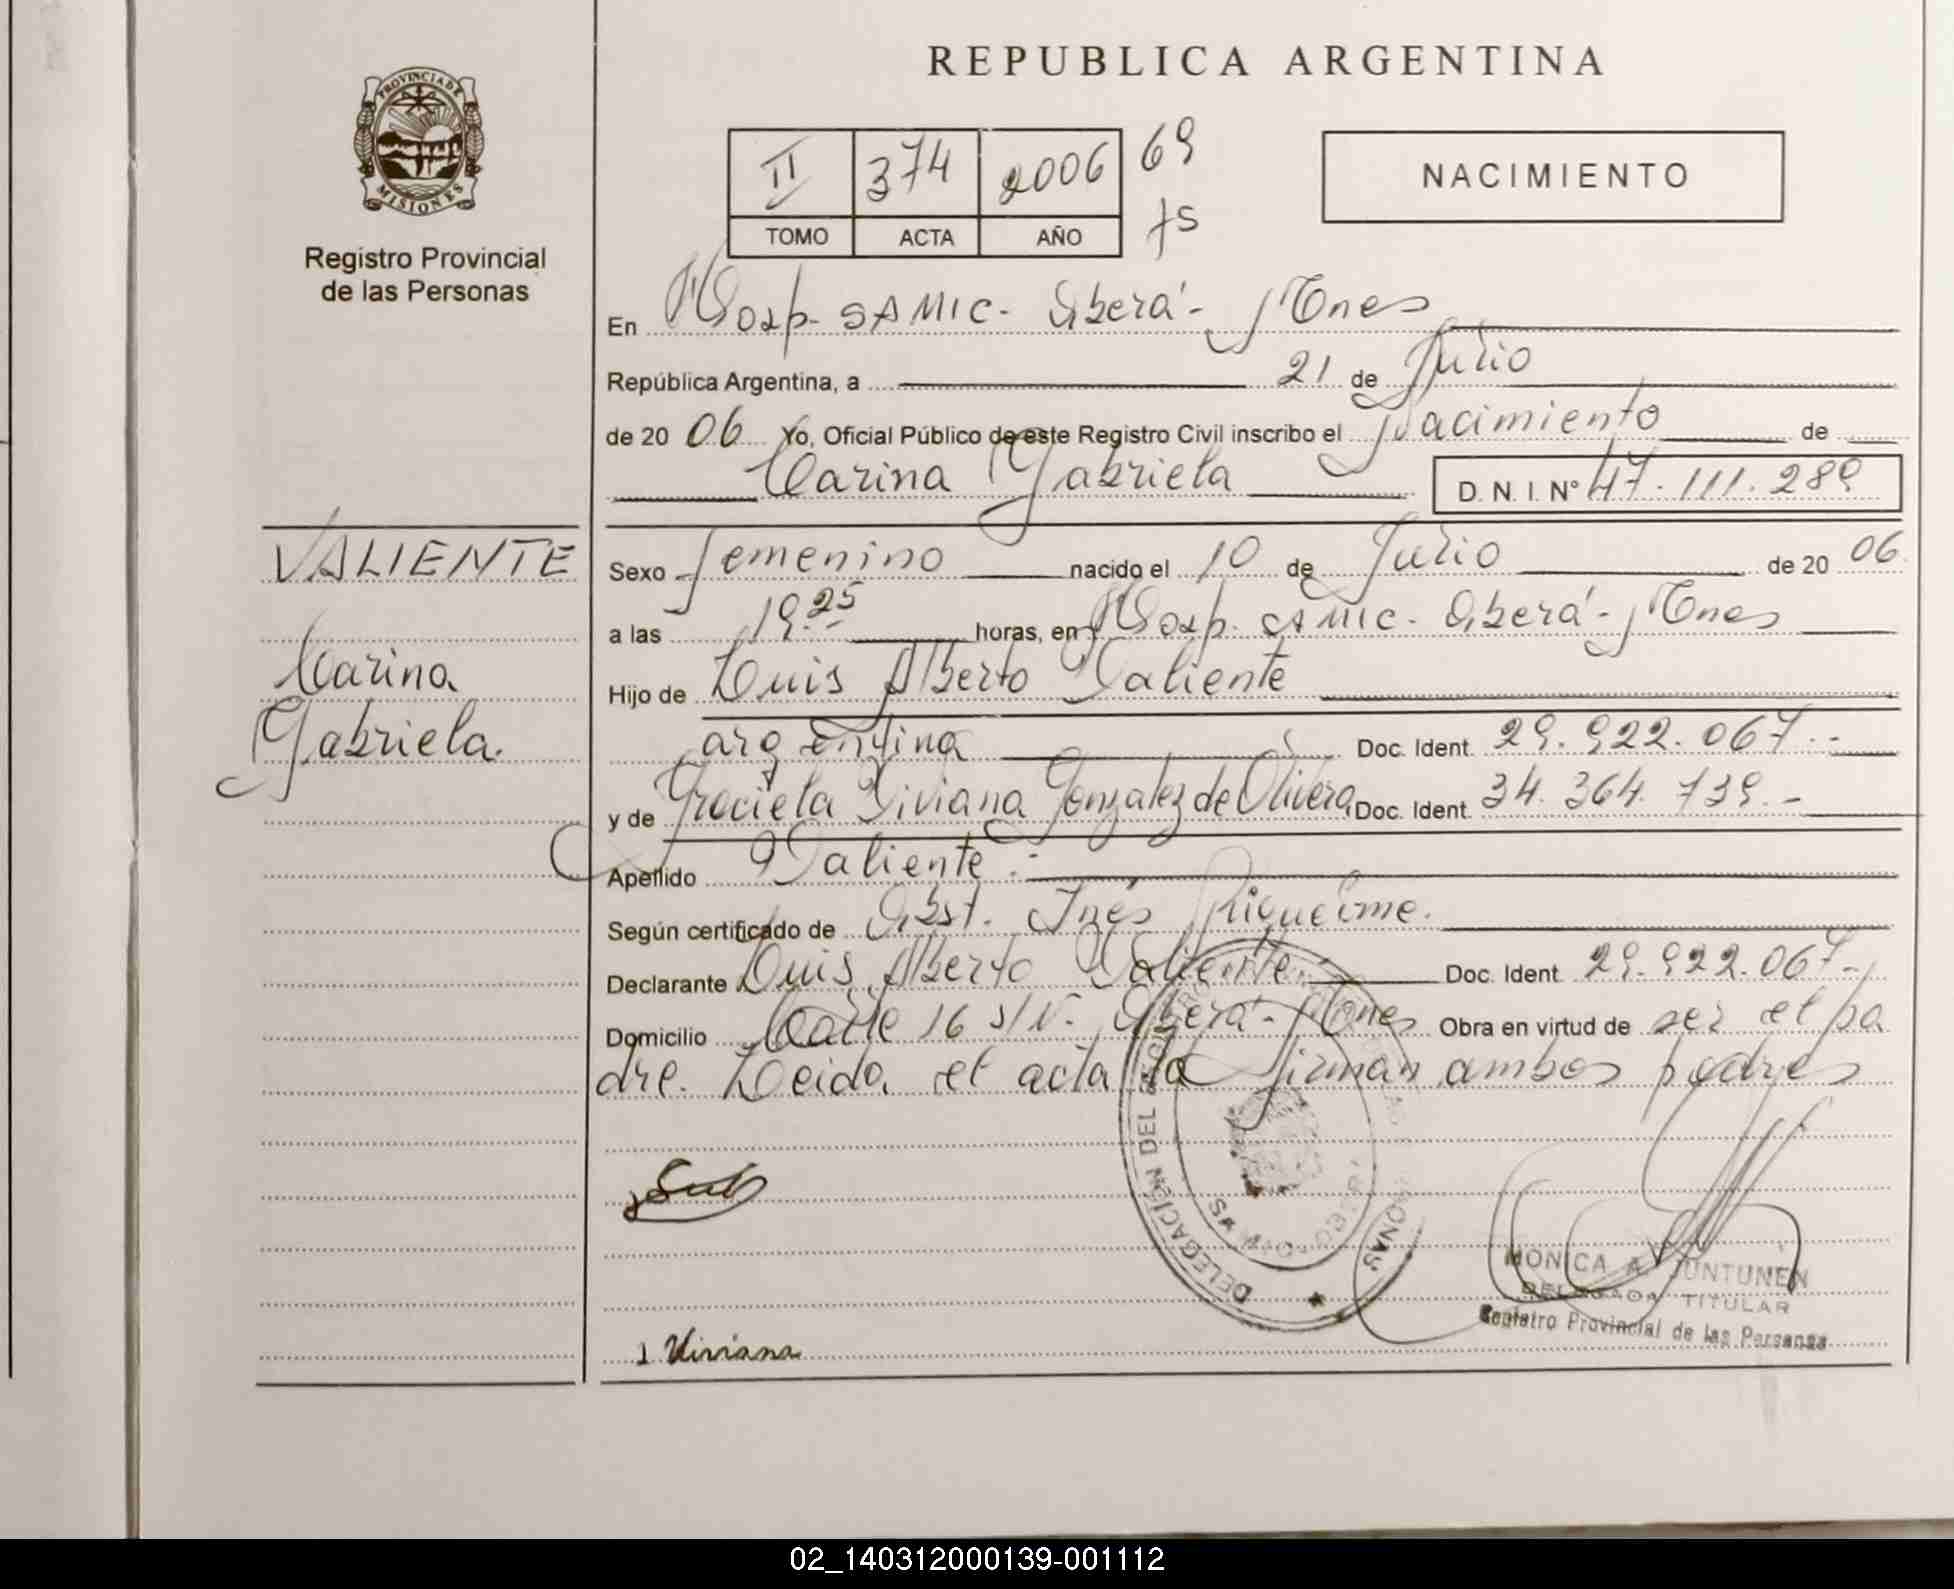 REPUBLICA ARGENTINA
PROVINCIA DE
MISIONES
Registro Provincial
de las Personas
II 374 2006 69
TOMO ACTA AÑO 75
NACIMIENTO
En Hosp. SAMIC - Oberá - Mnes
República Argentina, a 21 de Julio
de 2006 Yo, Oficial Público de este Registro Civil inscribo el Nacimiento de
Carina Gabriela D. N. I. Nº 47.111.289
VALIENTE
Carina
Gabriela.
Sexo femenino nacido el 10 de Julio de 2006
a las 19.25 horas, en Hosp. SAMIC - Oberá - Mnes
Hijo de Luis Alberto Valiente
argentina Doc. Ident. 29.922.067.-
y de Graciela Viviana Gonzalez de Olivera Doc. Ident. 34.364.739.-
Apellido Valiente.-
Según certificado de Obst. Inés Riquelme.
Declarante Luis Alberto Valiente Doc. Ident. 29.922.067-
Domicilio Calle 16 S/N. Oberá - Mnes Obra en virtud de ser el pa
dre. Leida el acta la firman ambos padres
DELEGACION DEL
MONICA A. JUNTUNEN
DELEGADA TITULAR
Registro Provincial de las Personas
Viviana
02_140312000139-001112